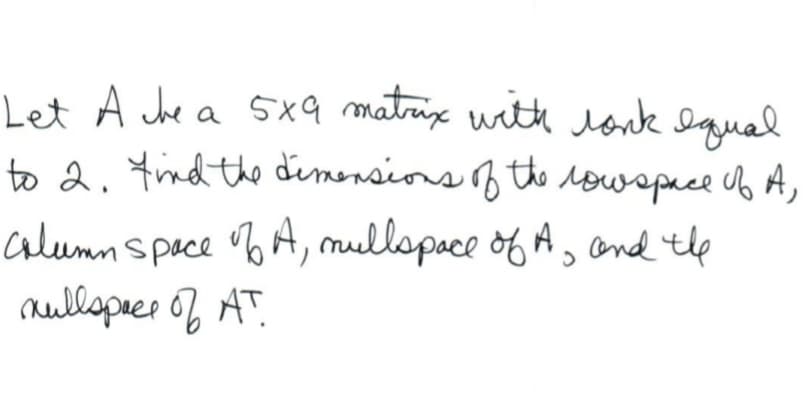 Let A be a 5x9 matrix with rank equal
to 2. Find the dimensions of the rowspace of A,
Column space of A, nullspace of A, and the
nullspace of Aᵀ.